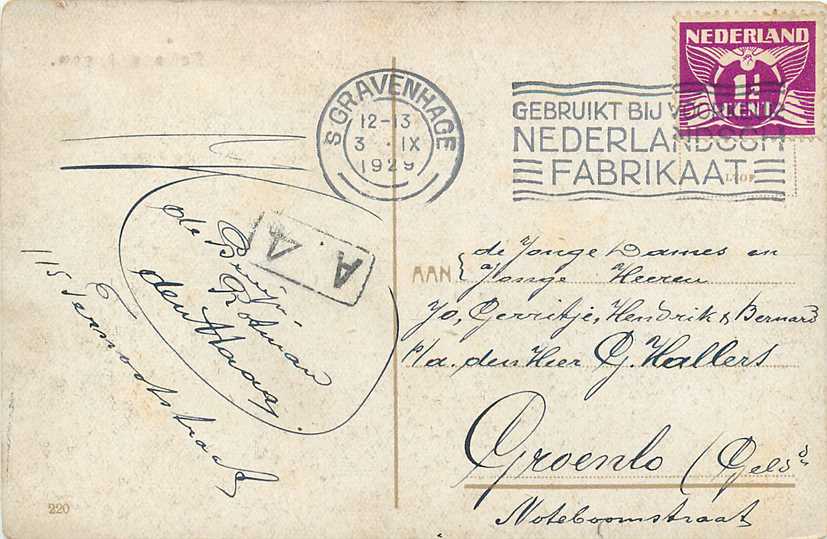 NEDERLAND
1½
CENT
'S GRAVENHAGE
12-13
3 . IX
1929
GEBRUIKT BIJ VOORKEUR
NEDERLANDSCH
FABRIKAAT
A. 4
de
Rotman
den Haag.
115 Termootstraat
AAN
de Jonge Dames en
Jonge Heeren
Jo, Gerritje, Hendrik & Bernard
p/a. den Heer G. Hallers
Groenlo (Geld
Noteboomstraat
220